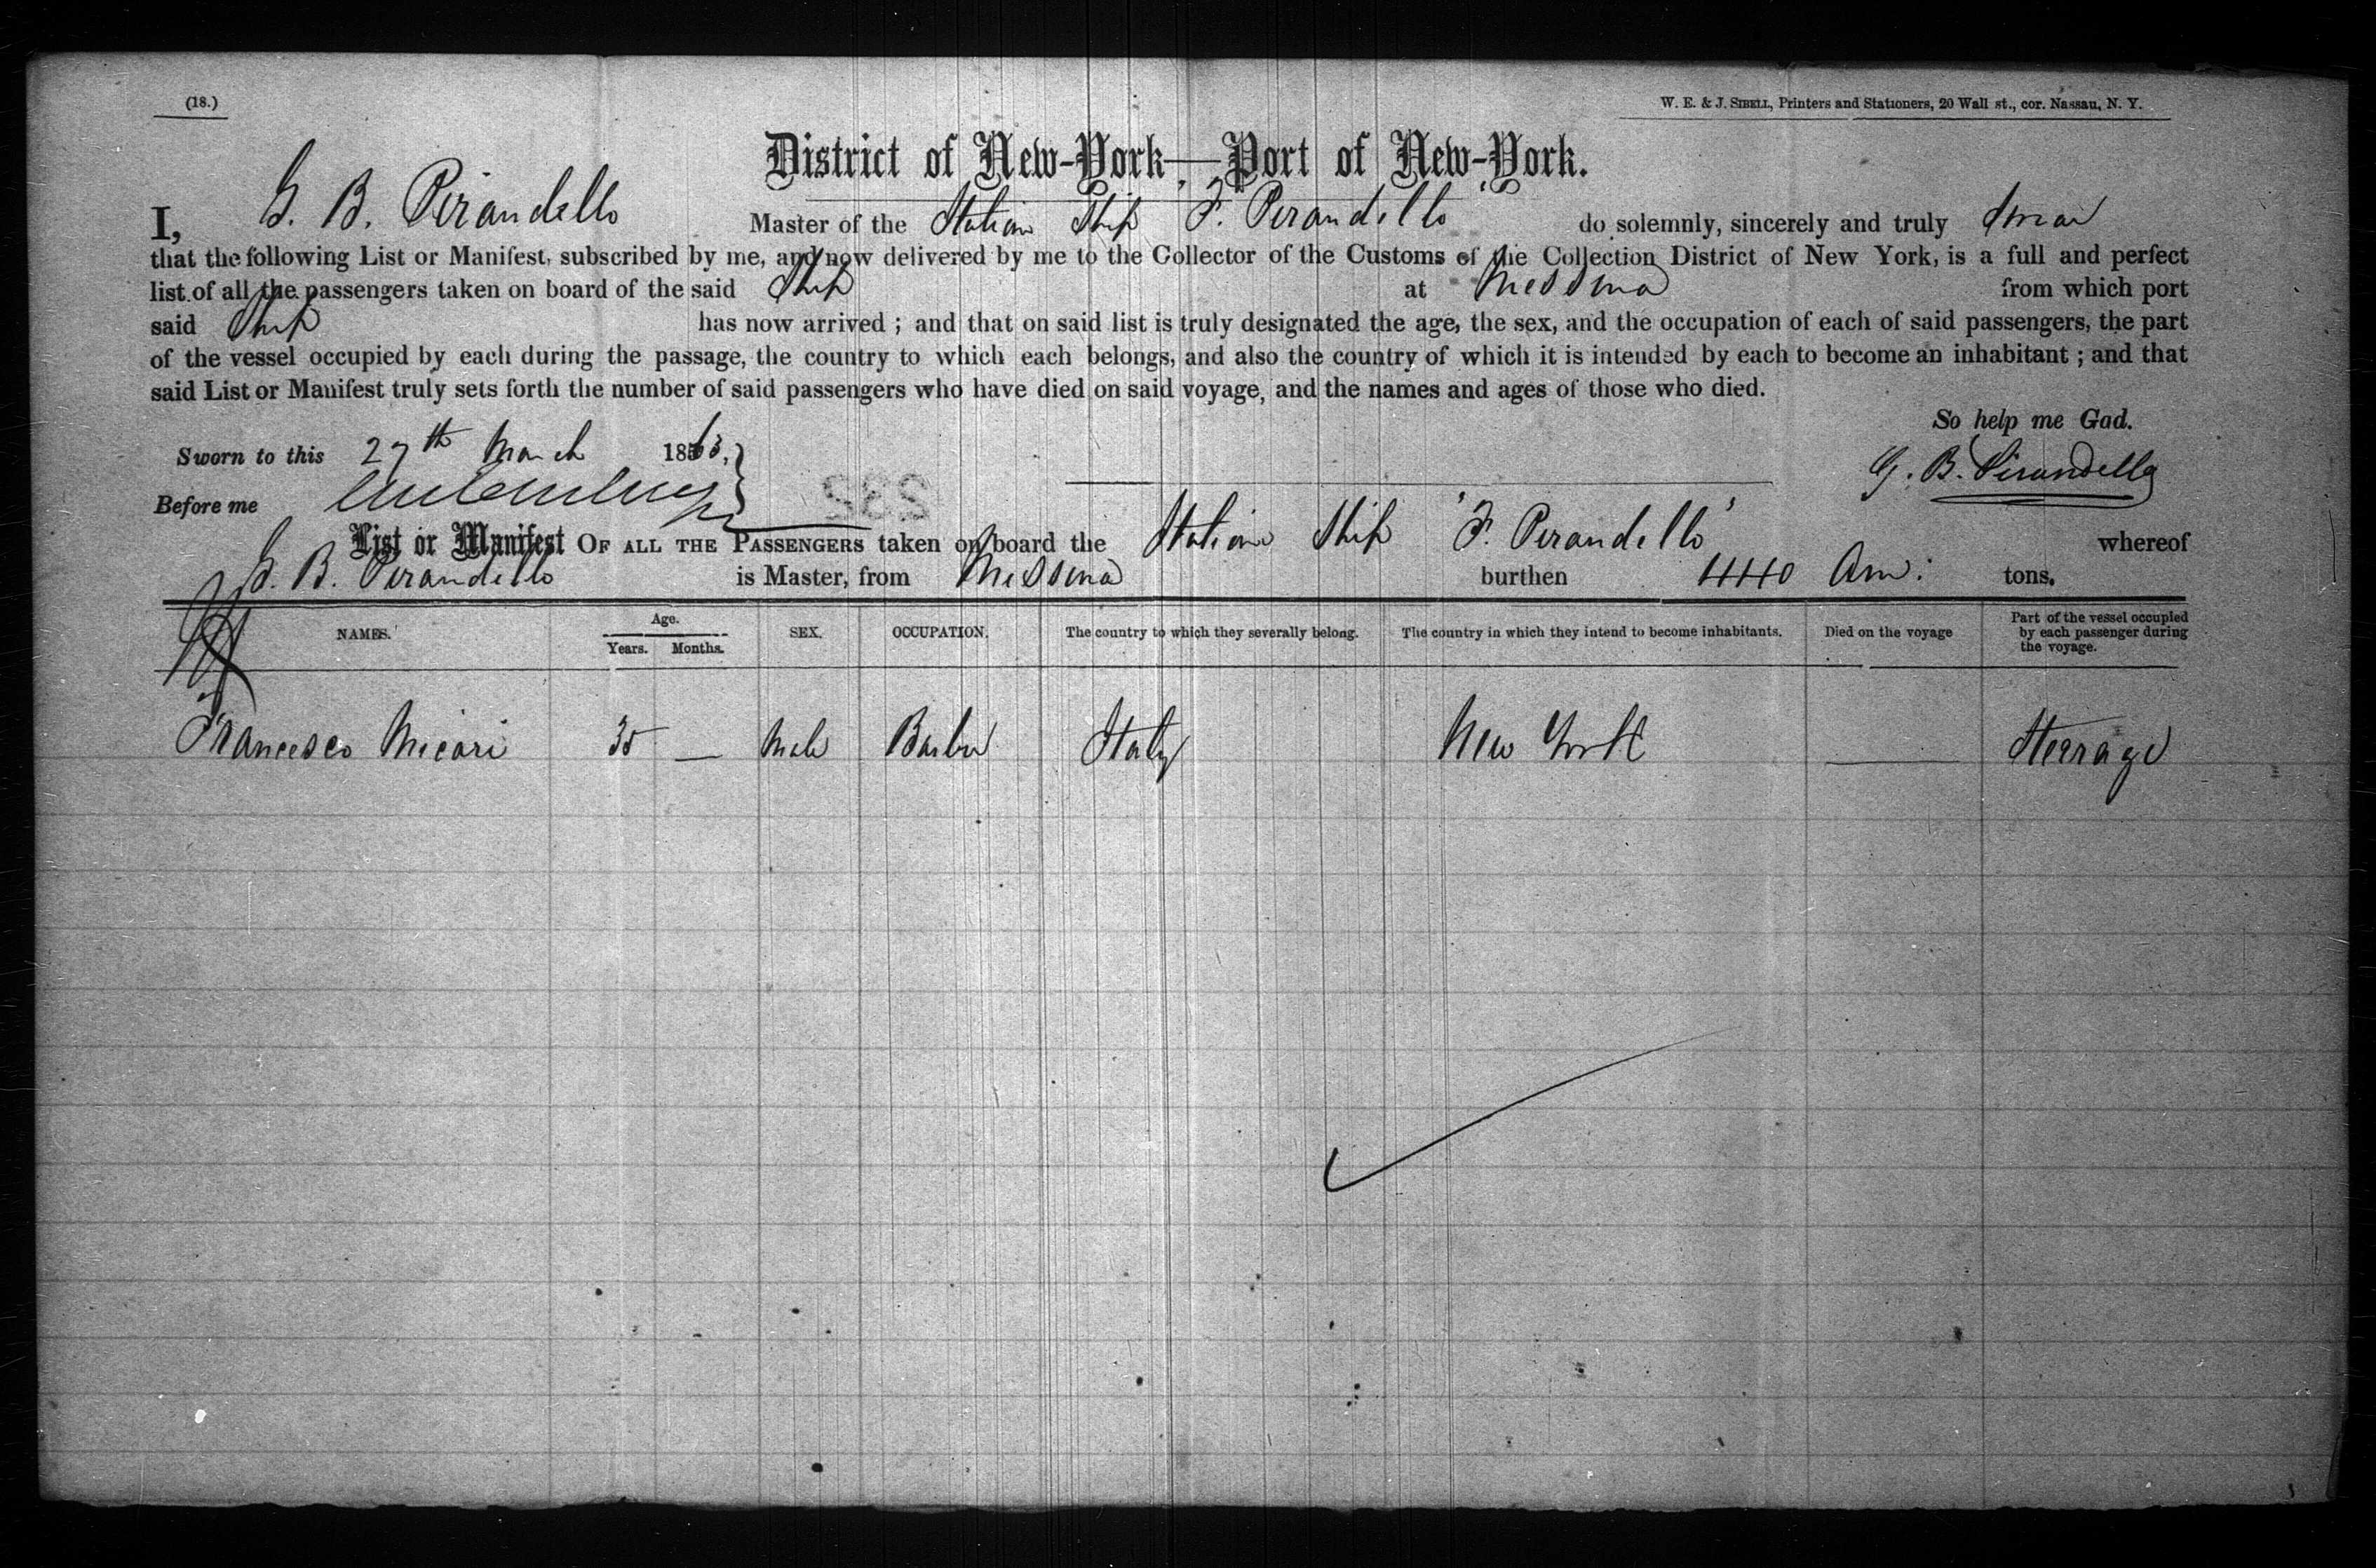 (18.)
W. E. & J. SIBELL, Printers and Stationers, 20 Wall st., cor. Nassau, N. Y.
District of New-York—Port of New-York.
I, G. B. Pirandello Master of the Italian Ship F. Pirandello do solemnly, sincerely and truly swear
that the following List or Manifest, subscribed by me, and now delivered by me to the Collector of the Customs of the Collection District of New York, is a full and perfect
list of all the passengers taken on board of the said Ship at Messina from which port
said Ship has now arrived ; and that on said list is truly designated the age, the sex, and the occupation of each of said passengers, the part
of the vessel occupied by each during the passage, the country to which each belongs, and also the country of which it is intended by each to become an inhabitant ; and that
said List or Manifest truly sets forth the number of said passengers who have died on said voyage, and the names and ages of those who died.
So help me God.
Sworn to this 27th March 1863,
G. B. Pirandello
Before me
232
List or Manifest OF ALL THE PASSENGERS taken on board the Italian Ship "F. Pirandello" whereof
G. B. Pirandello is Master, from Messina burthen 440 Am: tons.
NAMES. Age. Years. Months. SEX. OCCUPATION. The country to which they severally belong. The country in which they intend to become inhabitants. Died on the voyage Part of the vessel occupied by each passenger during the voyage.
Francesco Micari 35 — Male Barber Italy New York — Steerage